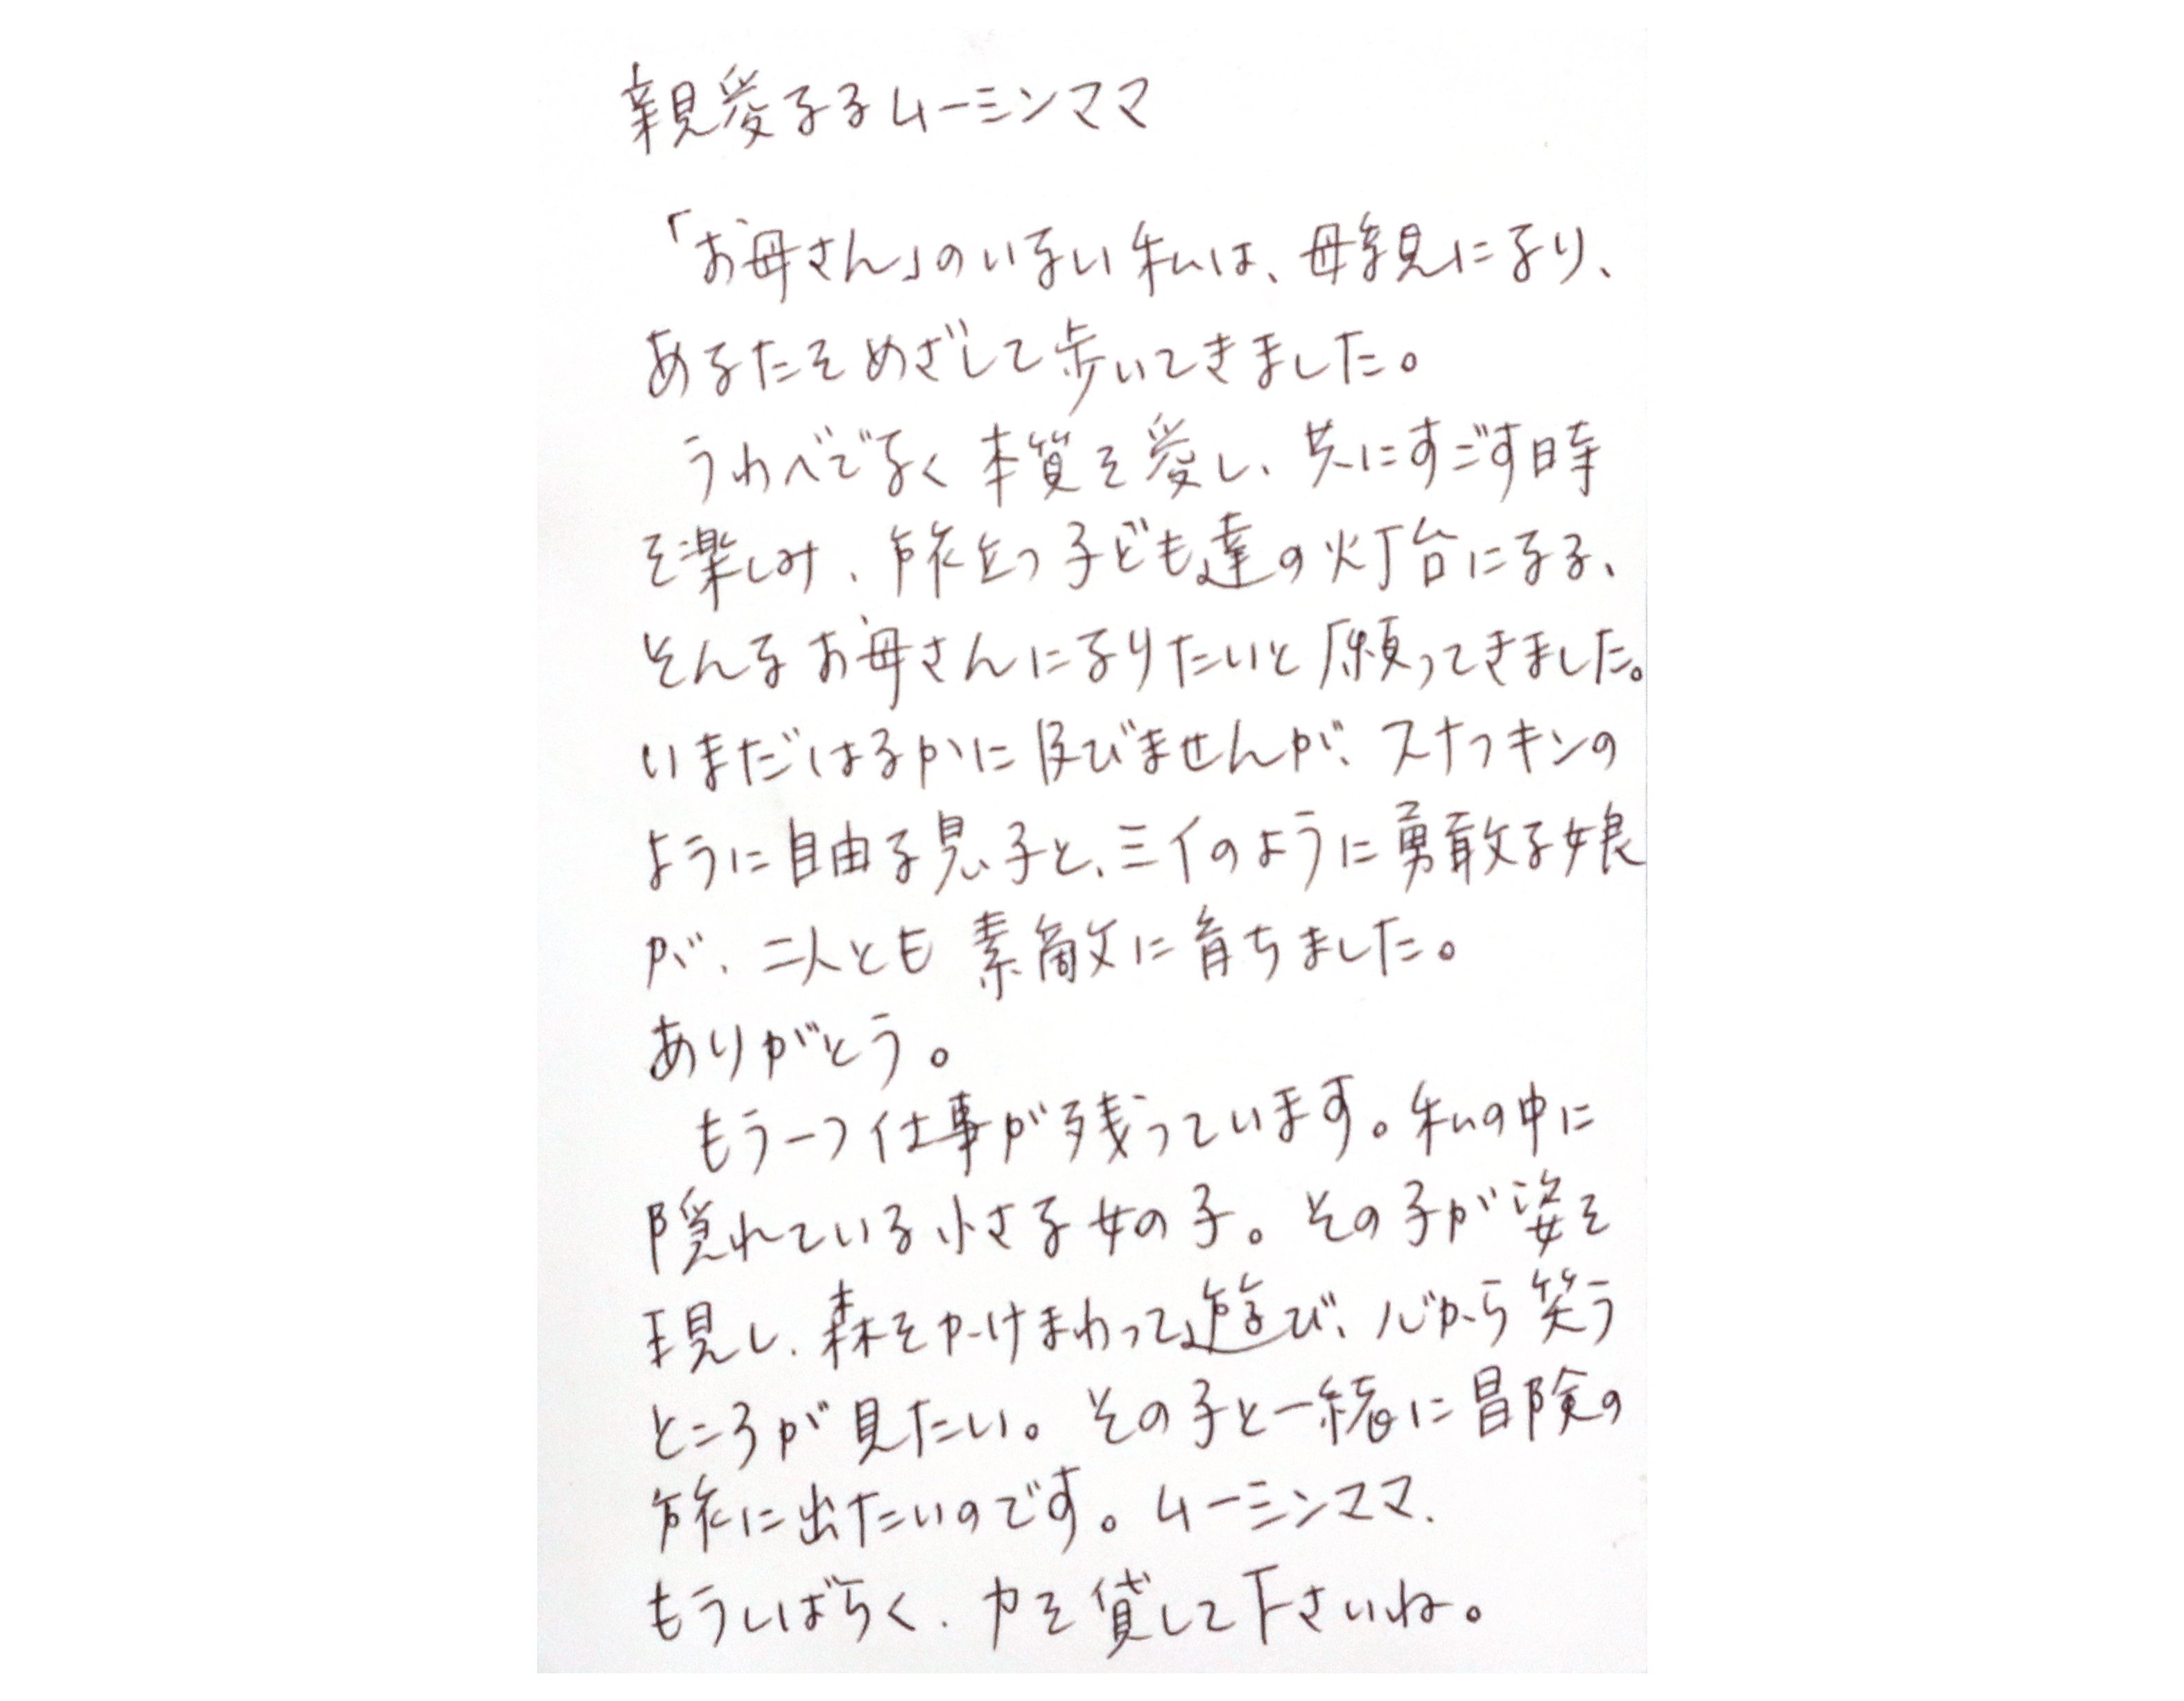 親愛なるムーミンママ
「お母さん」のいない私は、母親になり、
あなたをめざして歩いてきました。
うわべでなく本質を愛し、共にすごす時
を楽しみ、旅立つ子ども達の灯台になる、
そんなお母さんになりたいと願ってきました。
いまだはるかに及びませんが、スナフキンの
ように自由な息子と、ミイのように勇敢な娘
が、二人とも素敵に育ちました。
ありがとう。
もう一つ仕事が残っています。私の中に
隠れている小さな女の子。その子が姿を
現し、森をかけまわって遊び、心から笑う
ところが見たい。その子と一緒に冒険の
旅に出たいのです。ムーミンママ、
もうしばらく、力を貸して下さいね。